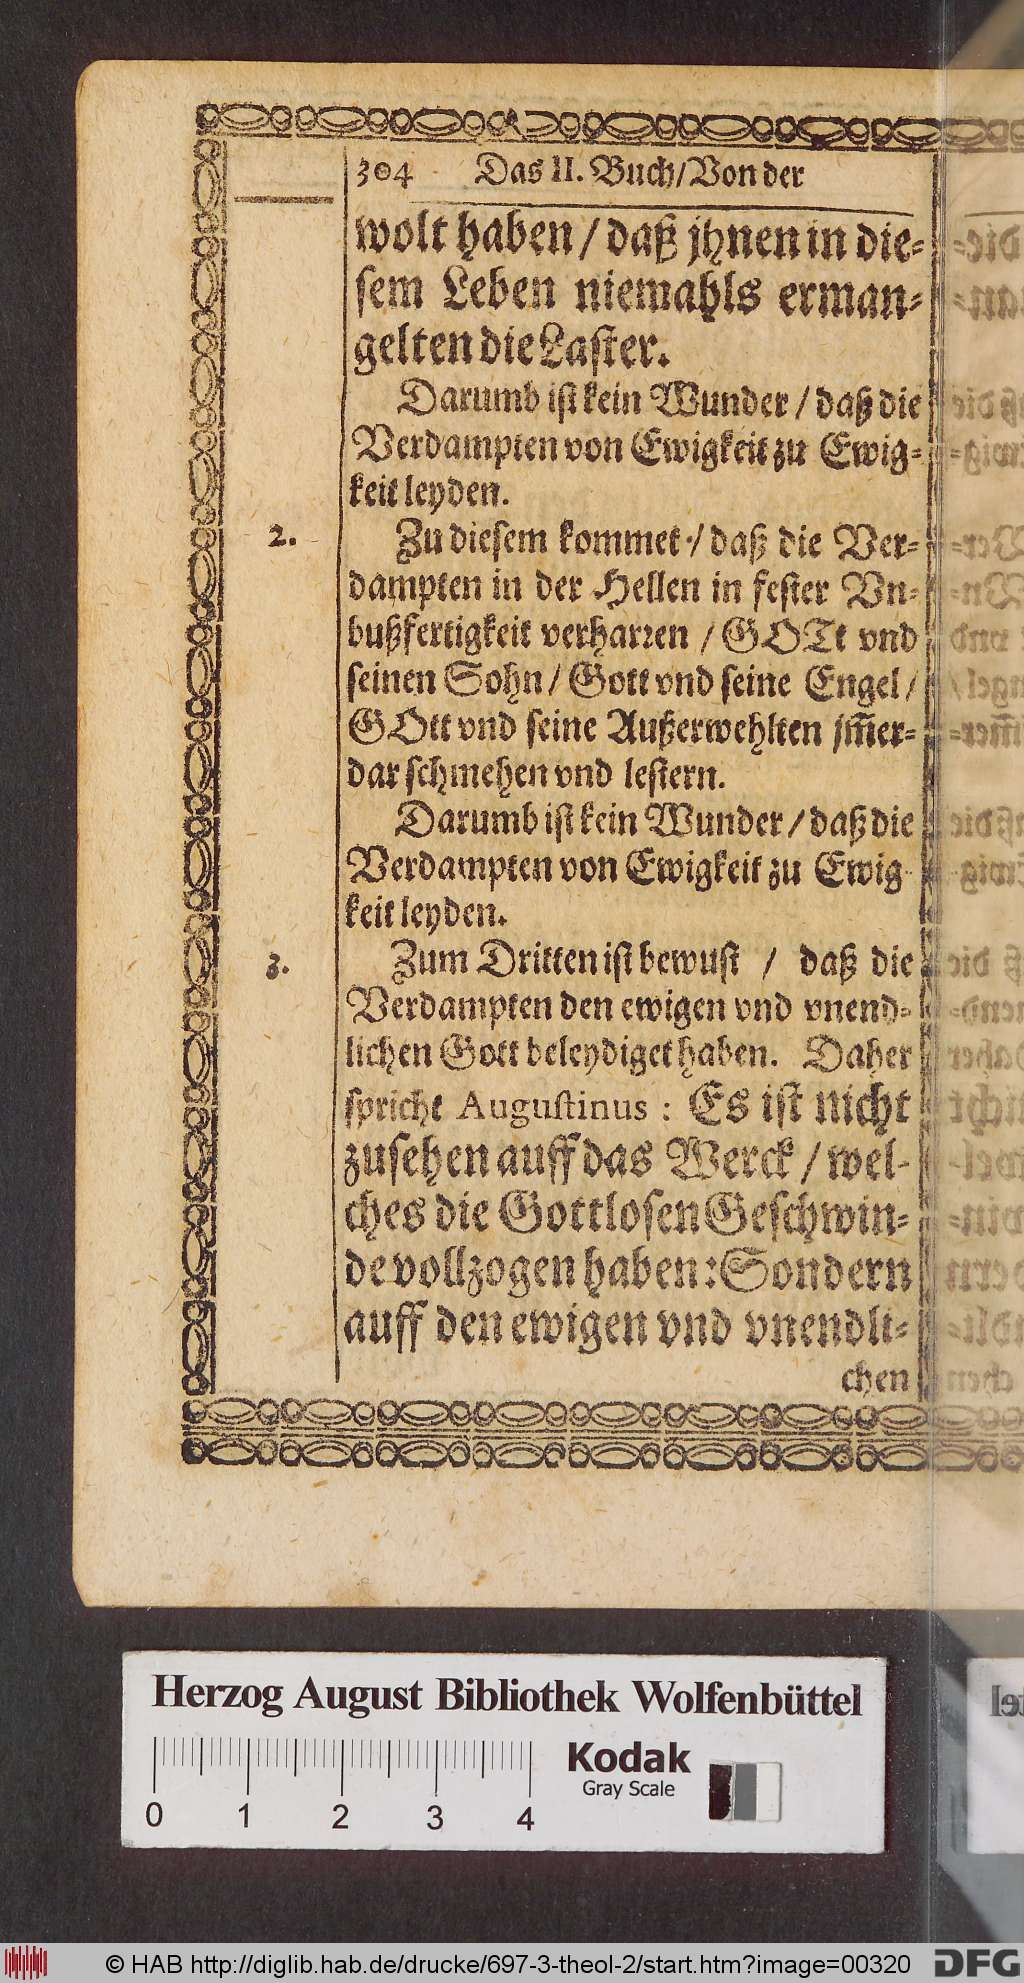 304 Das II. Buch/Von der
wolt haben / daß jhnen in die-
sem Leben niemahls erman-
gelten die Laster.
Darumb ist kein Wunder / daß die
Verdampten von Ewigkeit zu Ewig-
keit leyden.
2. Zu diesem kommet / daß die Ver-
dampten in der Hellen in fester Vn-
bußfertigkeit verharren / GOTt vnd
seinen Sohn / Gott vnd seine Engel /
GOtt vnd seine Außerwehlten jm̄er-
dar schmehen vnd lestern.
Darumb ist kein Wunder / daß die
Verdampten von Ewigkeit zu Ewig
keit leyden.
3. Zum Dritten ist bewust / daß die
Verdampten den ewigen vnd vnend-
lichen Gott beleydiget haben. Daher
spricht Augustinus : Es ist nicht
zusehen auff das Werck / wel-
ches die Gottlosen Geschwin-
de vollzogen haben: Sondern
auff den ewigen vnd vnendli-
chen
Herzog August Bibliothek Wolfenbüttel
Kodak
Gray Scale
0 1 2 3 4
© HAB http://diglib.hab.de/drucke/697-3-theol-2/start.htm?image=00320
DFG